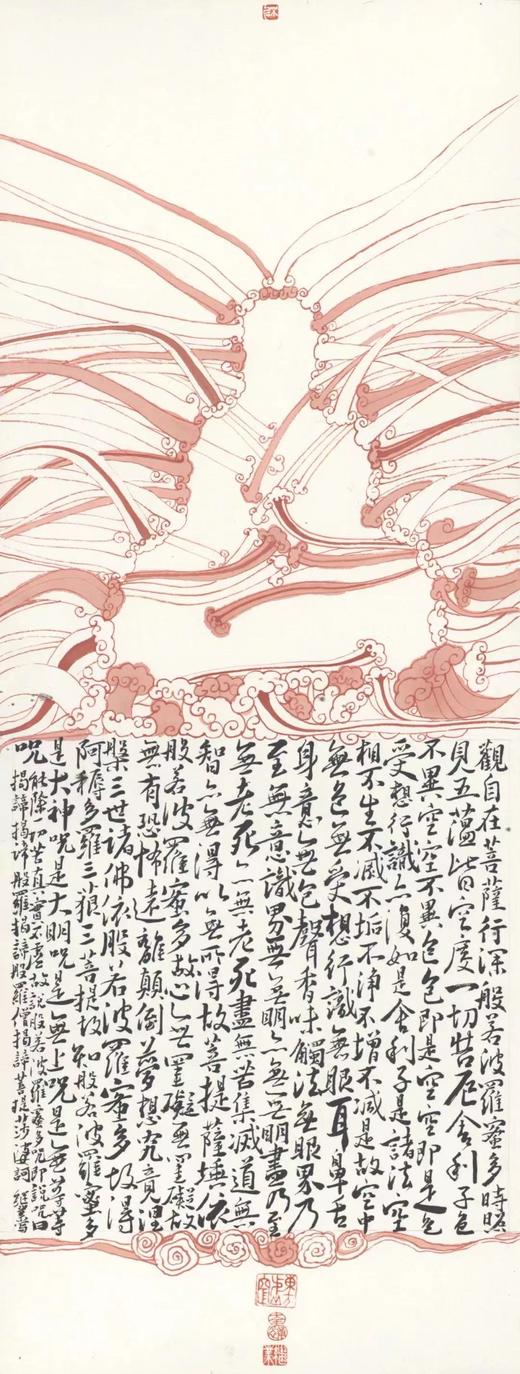 觀自在菩薩行深般若波羅蜜多時照
見五蘊皆空度一切苦厄舍利子色
不異空空不異色色即是空空即是色
受想行識亦復如是舍利子是諸法空
相不生不滅不垢不淨不增不減是故空中
無色無受想行識無眼耳鼻舌
身意无色聲香味觸法無眼界乃
至無意識界無无明亦無无明盡乃至
無老死亦無老死盡無苦集滅道無
智亦無得以無所得故菩提薩埵依
般若波羅蜜多故心无罣礙无罣礙故
無有恐怖遠離顛倒夢想究竟涅
槃三世諸佛依般若波羅蜜多故得
阿耨多羅三藐三菩提故知般若波羅蜜多
是大神咒是大明咒是無上咒是无等等
咒能除一切苦真實不虛故說般若波羅蜜多咒即說咒曰
揭諦揭諦般羅揭諦般羅僧揭諦菩提莎婆訶